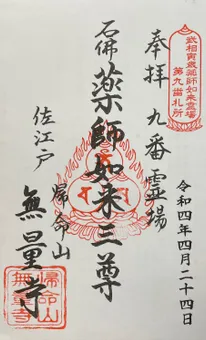 武相寅歳薬師如来霊場
第九番札所
奉拝 九番霊場
石佛 薬師如来三尊
佐江戸 帰命山
無量寺
令和四年四月二十四日
帰命山
無量寺